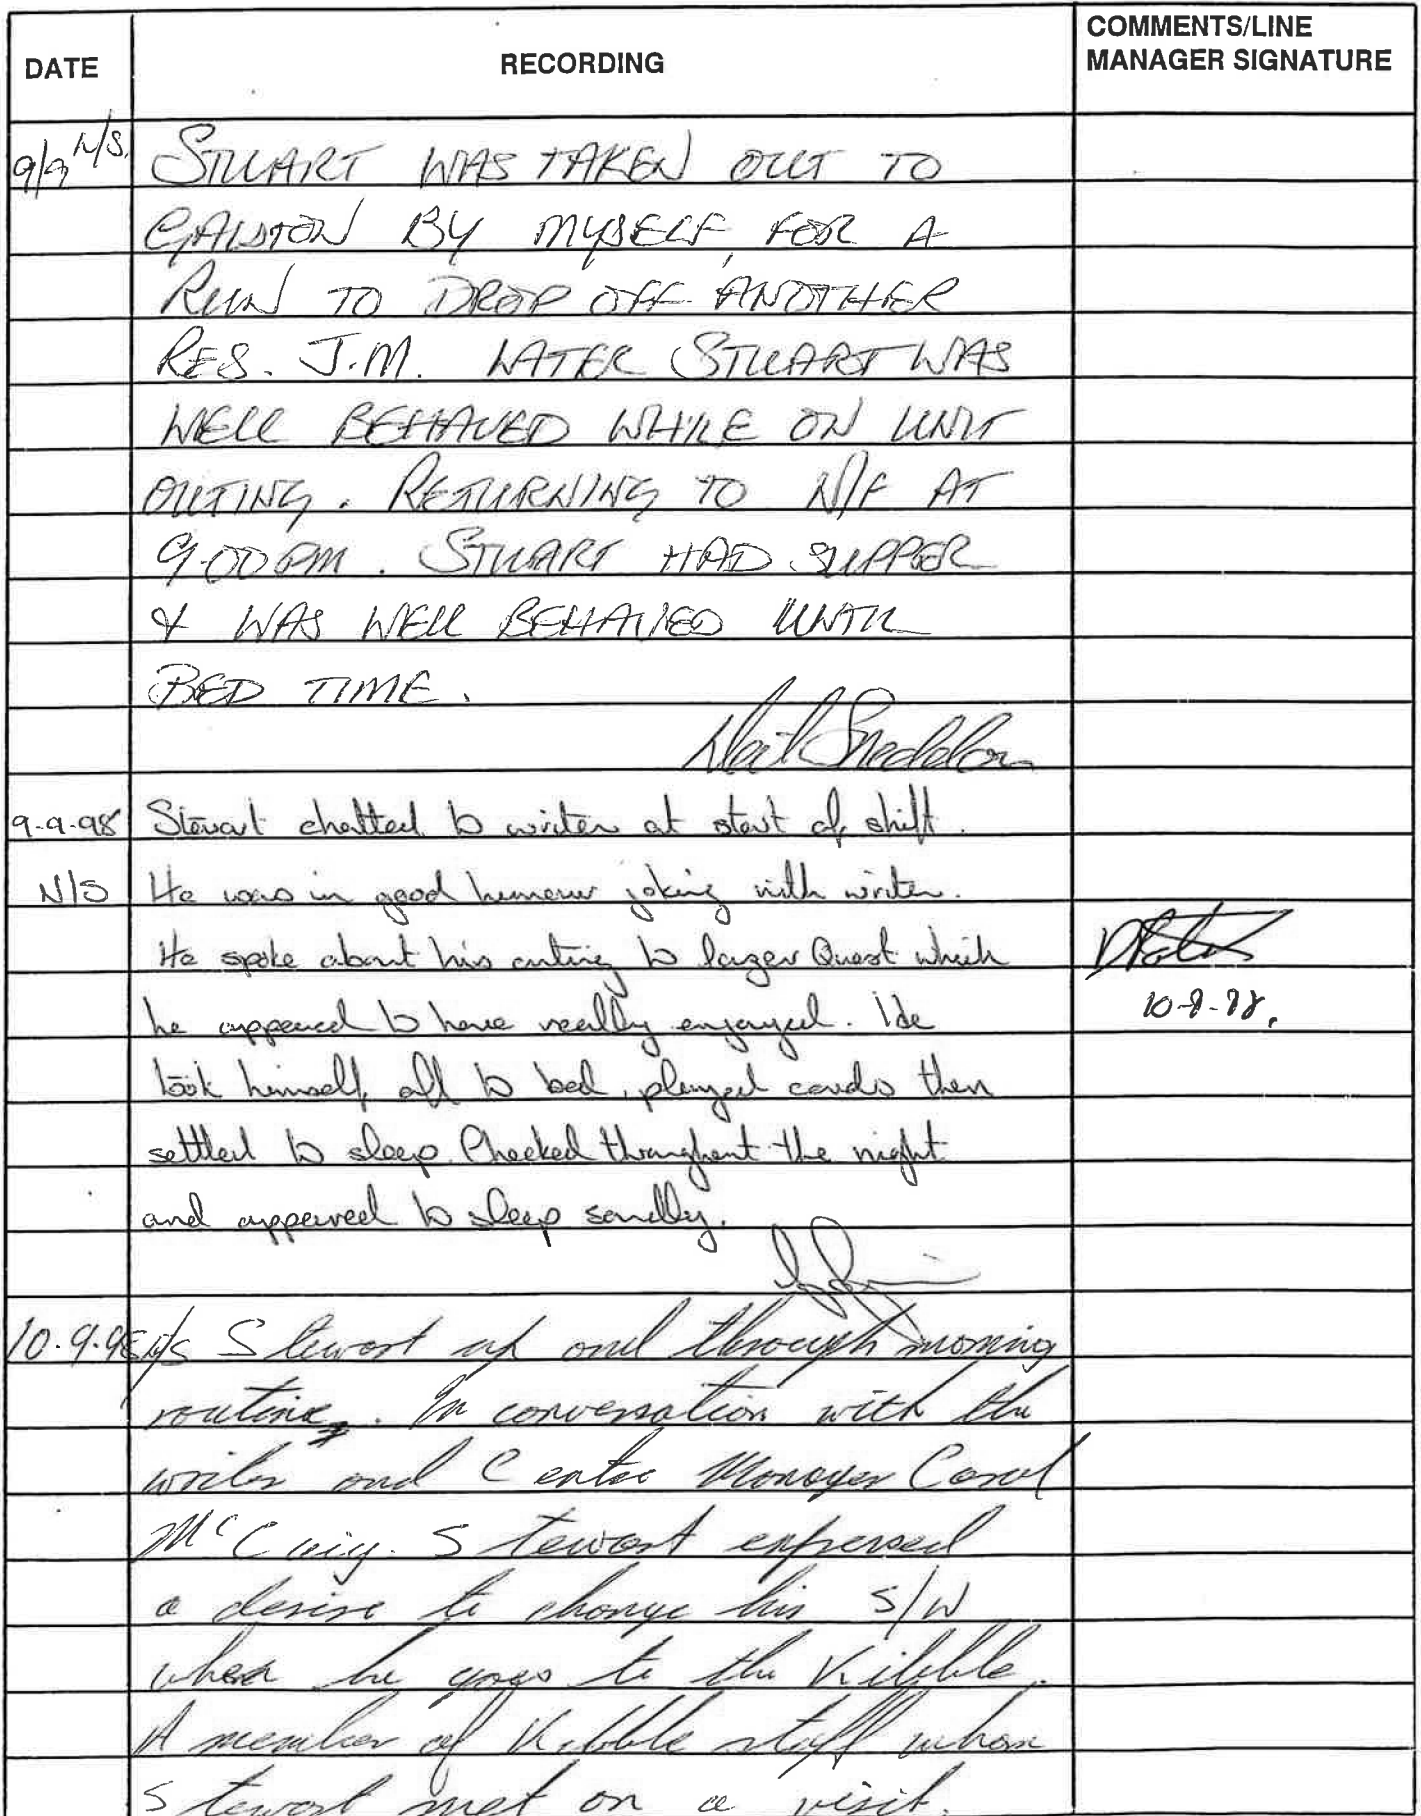 DATE
RECORDING
COMMENTS/LINE
MANAGER SIGNATURE
9/9 N/S. STUART WAS TAKEN OUT TO
GALSTON BY MYSELF, FOR A
RUN TO DROP OFF ANOTHER
RES. J.M. LATER STUART WAS
WELL BEHAVED WHILE ON UNIT
OUTING. RETURNING TO N/F AT
9.00 PM. STUART HAD SUPPER
& WAS WELL BEHAVED UNTIL
BED TIME.
Neil Sneddon
9.9.98 Stewart chatted to writer at start of shift.
N/S He was in good humour joking with writer.
He spoke about his outing to Lazer Quest which
he appeared to have really enjoyed. He
10-9-98.
took himself off to bed, played cards then
settled to sleep. Checked throughout the night
and appeared to sleep soundly.
10.9.98 Stewart up and through morning
routine. In conversation with the
writer and Centre Manager Carol
McCuig. Stewart expersed
a desire to change his S/W
when he goes to the Kibble.
A member of Kibble staff whom
Stewart met on a visit.